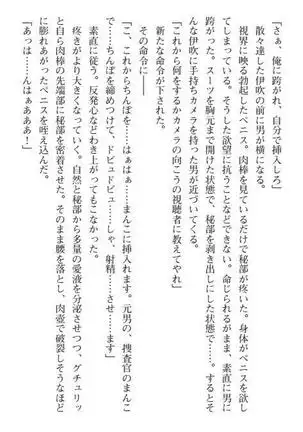 「さぁ、俺に跨がれ、自分で挿入しろ」
　散々達した伊吹の前に男が横になる。
　視界に映る勃起したペニス。肉棒を見ているだけで秘部が疼いた。身体がペニスを欲し
てしまっている。そうした欲望に抗うことなどできない。命じられるがまま、素直に男に
跨がった。スーツを胸元まで開けた状態で、秘部を剥き出しにした状態で……。するとそ
んな伊吹に手持ちカメラを持った男が近づいてくる。
「これから何をするかカメラの向こうの視聴者に教えてやれ」
　新たな命令が下された。
　その命令に――
「こ、これからちんぽを……はぁはぁ……まんこに挿入れます。元男の、捜査官のまんこ
で……ちんぽを締めつけて、ドビュドビュ……しゃ、射精……させ……ます」
　素直に従う。反発心などわき上がってもこなかった。
　疼きがより大きくなっていく。自然と秘部から多量の愛液を分泌させつつ、グチュリッ
と自ら肉棒の先端部に秘部を密着させた。そのまま腰を落とし、肉壺で破裂しそうなほど
に膨れあがったペニスを咥え込んだ。
「あっは――んはぁああああ！」